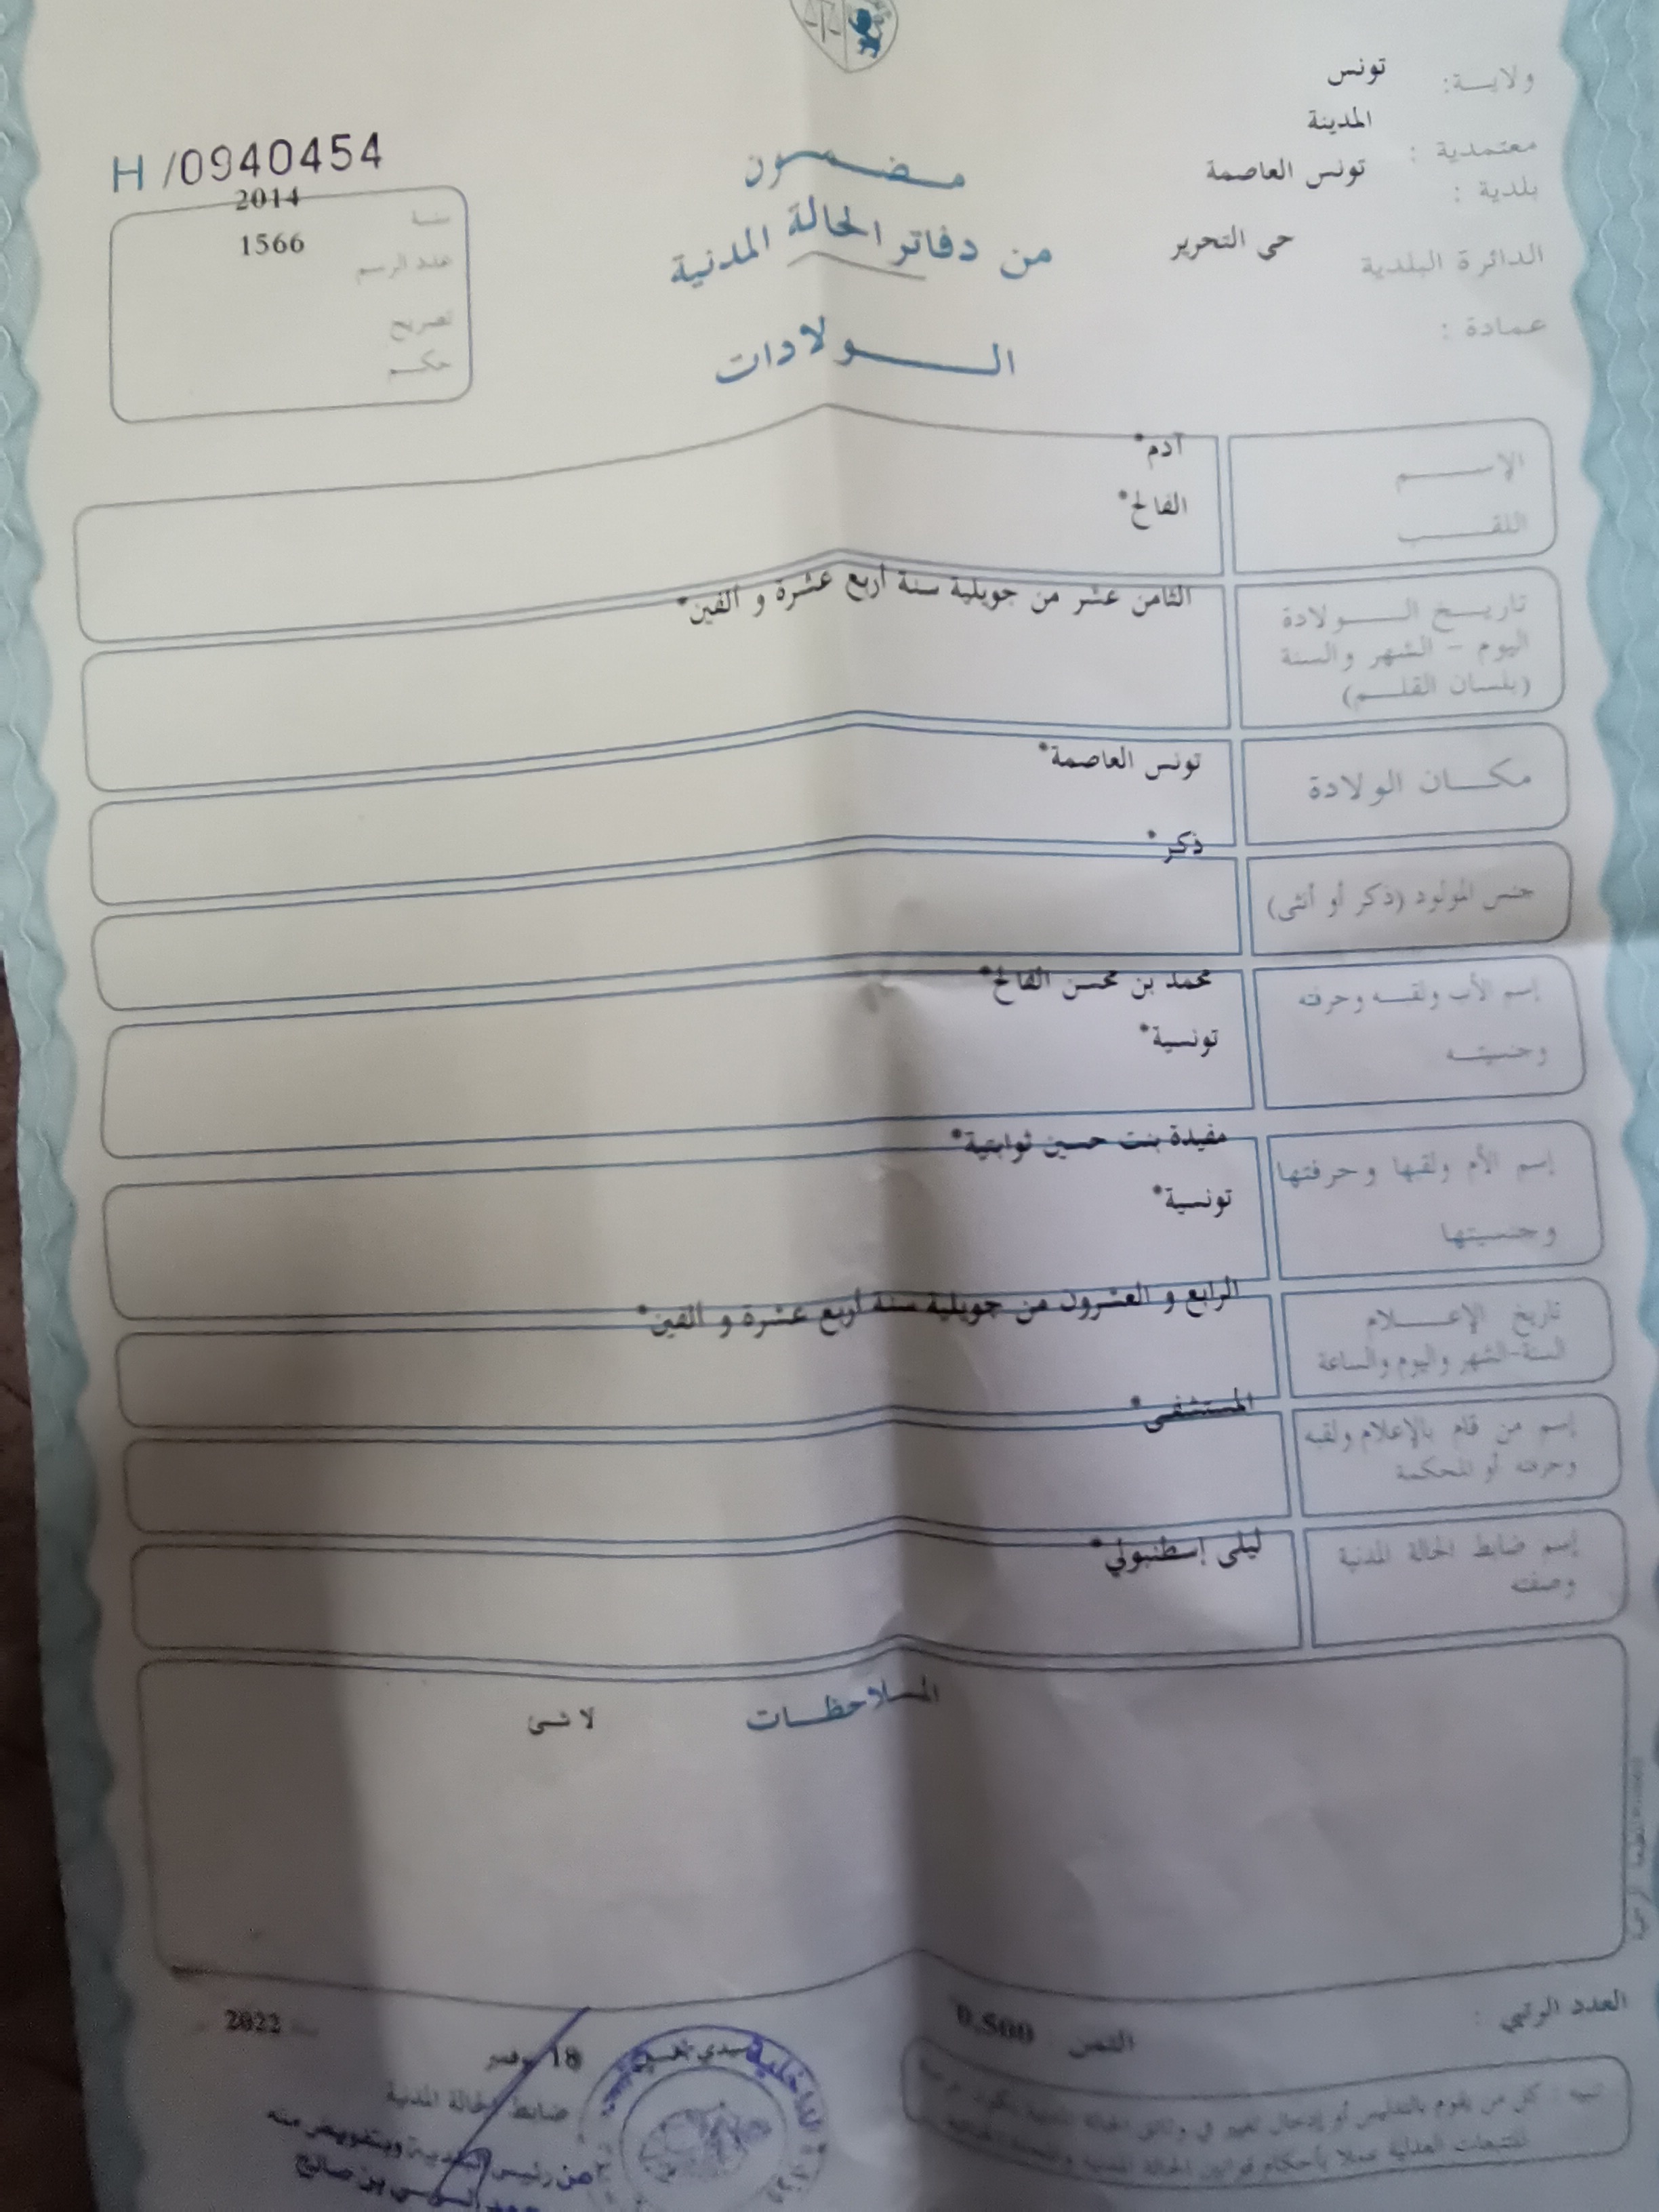 ولايـــة: تونس
المدينة
معتمدية :
بلدية : تونس العاصمة
الدائرة البلدية حي التحرير
عمادة :
مـضـمـــون
من دفاتر الحالة المدنية
الـــولادات
H /0940454
سنـة 2014
عدد الرسم 1566
تصريح
حكـــم
الإســـــم آدم*
اللقـــــب الفالح*
تاريـــخ الـــــولادة الثامن عشر من جويلية سنة أربع عشرة و ألفين*
اليوم – الشهر والسنة
(بلســان القلـــم)
مكـــان الولادة تونس العاصمة*
جنس المولود (ذكر أو أنثى) ذكر*
إسم الأب ولقبـــه وحرفته محمد بن محسن الفالح*
وجنسيتـــه تونسية*
إسم الأم ولقبها وحرفتها مفيدة بنت حسين ثوابتية*
وجنسيتها تونسية*
تاريخ الإعـــــلام الرابع و العشرون من جويلية سنة أربع عشرة و ألفين*
السنة-الشهر واليوم والساعة
إسم من قام بالإعلام ولقبه المستشفى*
وحرفته أو المحكمة
إسم ضابط الحالة المدنية ليلى إسطنبولي*
وصفته
المـــلاحظـــات لا شئ
العدد الرتبي :
الثمن 0.500
2022
18 نوفمبر
ضابط الحالة المدنية
عن رئيس البلدية وبتفويض منه
تنبيه : كل من يقوم بالتدليس أو إدخال تغيير في وثائق الحالة المدنية